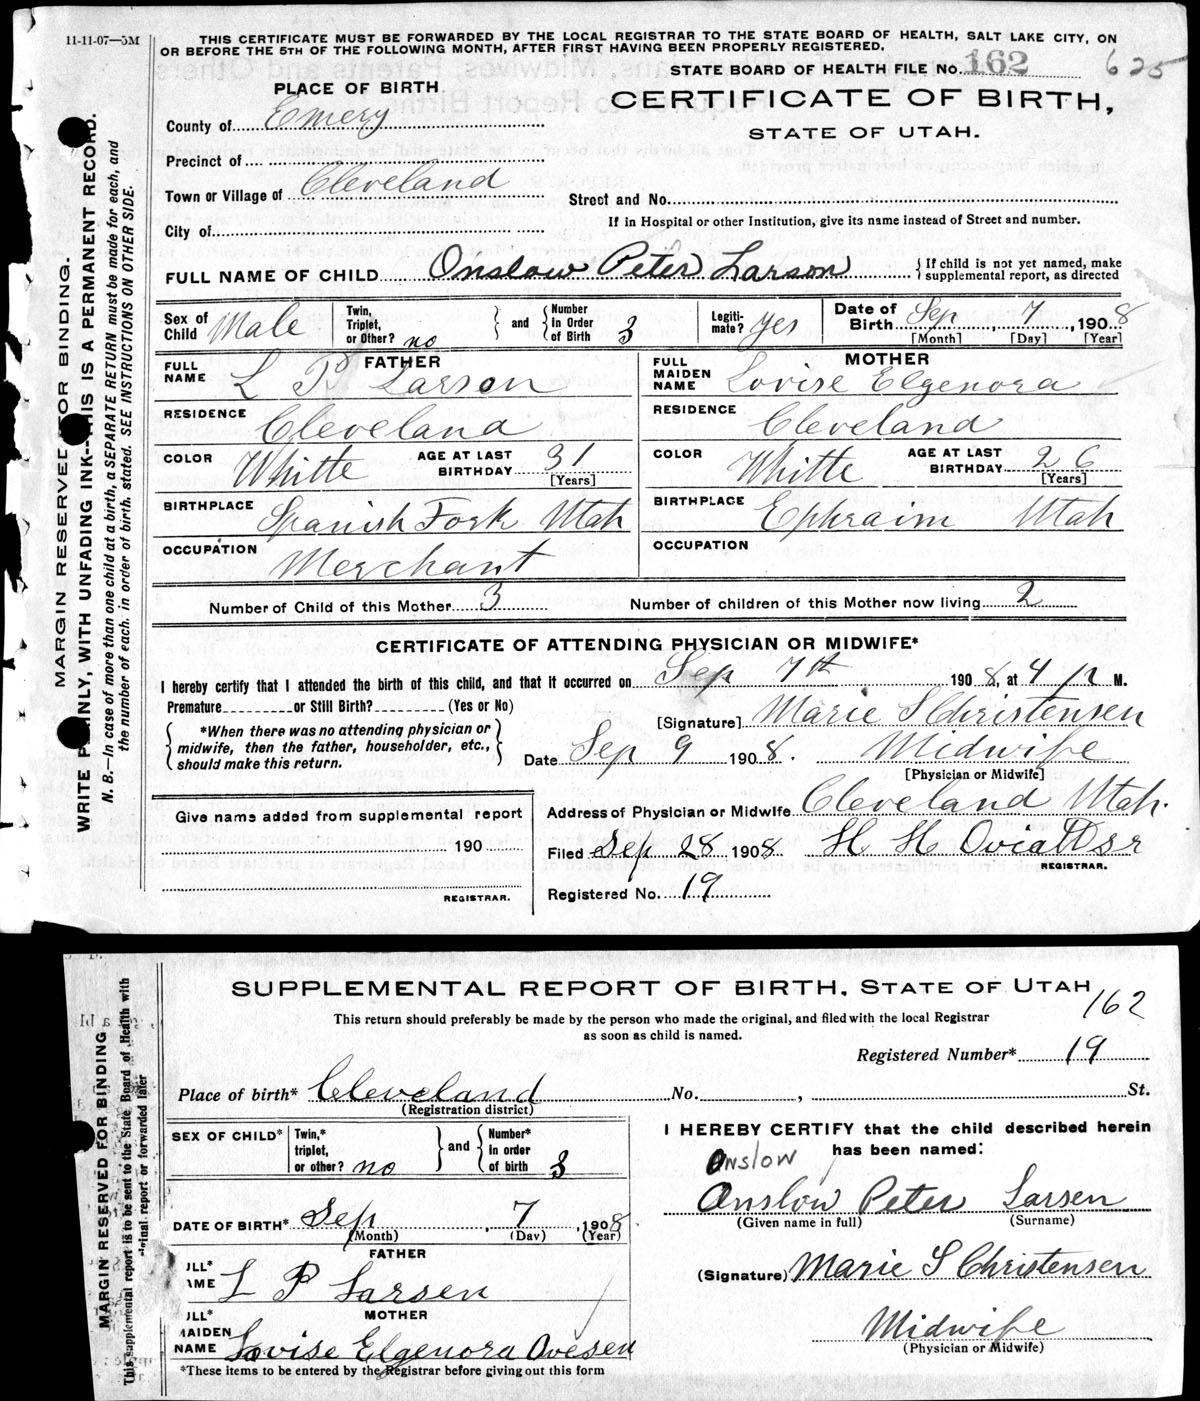 11-11-07—5M
THIS CERTIFICATE MUST BE FORWARDED BY THE LOCAL REGISTRAR TO THE STATE BOARD OF HEALTH, SALT LAKE CITY, ON
OR BEFORE THE 5TH OF THE FOLLOWING MONTH, AFTER FIRST HAVING BEEN PROPERLY REGISTERED.
STATE BOARD OF HEALTH FILE No. 162 625
PLACE OF BIRTH
CERTIFICATE OF BIRTH,
STATE OF UTAH.
County of Emery
Precinct of
Town or Village of Cleveland
Street and No.
If in Hospital or other Institution, give its name instead of Street and number.
City of
FULL NAME OF CHILD Onslow Peter Larson {If child is not yet named, make
supplemental report, as directed
Sex of Child Male Twin, Triplet, or Other? no and Number in Order of Birth 3 Legiti-mate? yes Date of Birth Sep 7, 1908
[Month] [Day] [Year]
FATHER MOTHER
FULL NAME L P Larson FULL MAIDEN NAME Lovise Elgenora
RESIDENCE Cleveland RESIDENCE Cleveland
COLOR Whitte AGE AT LAST BIRTHDAY 31 [Years] COLOR Whitte AGE AT LAST BIRTHDAY 26 [Years]
BIRTHPLACE Spanish Fork Utah BIRTHPLACE Ephraim Utah
OCCUPATION Merchant OCCUPATION
Number of Child of this Mother 3 Number of children of this Mother now living 2
CERTIFICATE OF ATTENDING PHYSICIAN OR MIDWIFE*
I hereby certify that I attended the birth of this child, and that it occurred on Sep 7th 1908, at 4 p M.
Premature or Still Birth? (Yes or No)
*When there was no attending physician or
midwife, then the father, householder, etc.,
should make this return.
[Signature] Marie S Christensen
Date Sep 9 1908. Midwife
[Physician or Midwife]
Give name added from supplemental report
190
REGISTRAR.
Address of Physician or Midwife Cleveland Utah.
Filed Sep 28 1908 H H Oviatt sr
REGISTRAR.
Registered No. 19
MARGIN RESERVED FOR BINDING.
WRITE PLAINLY, WITH UNFADING INK--THIS IS A PERMANENT RECORD.
N. B.—In case of more than one child at a birth, a SEPARATE RETURN must be made for each, and
the number of each, in order of birth, stated. SEE INSTRUCTIONS ON OTHER SIDE.
SUPPLEMENTAL REPORT OF BIRTH, STATE OF UTAH
162
This return should preferably be made by the person who made the original, and filed with the local Registrar
as soon as child is named.
Registered Number* 19
Place of birth* Cleveland No. , St.
(Registration district)
SEX OF CHILD* Twin,* triplet, or other? no and Number* in order of birth 3
I HEREBY CERTIFY that the child described herein
has been named:
Onslow
Onslow Peter Larsen
(Given name in full) (Surname)
DATE OF BIRTH* Sep, 7, 1908
(Month) (Day) (Year)
FATHER
ULL* AME L P Larsen
(Signature) Marie S Christensen
MOTHER
ULL* MAIDEN NAME Lovise Elgenora Ovesen
Midwife
(Physician or Midwife)
*These items to be entered by the Registrar before giving out this form
MARGIN RESERVED FOR BINDING
This supplemental report is to be sent to the State Board of Health with
original report or forwarded later